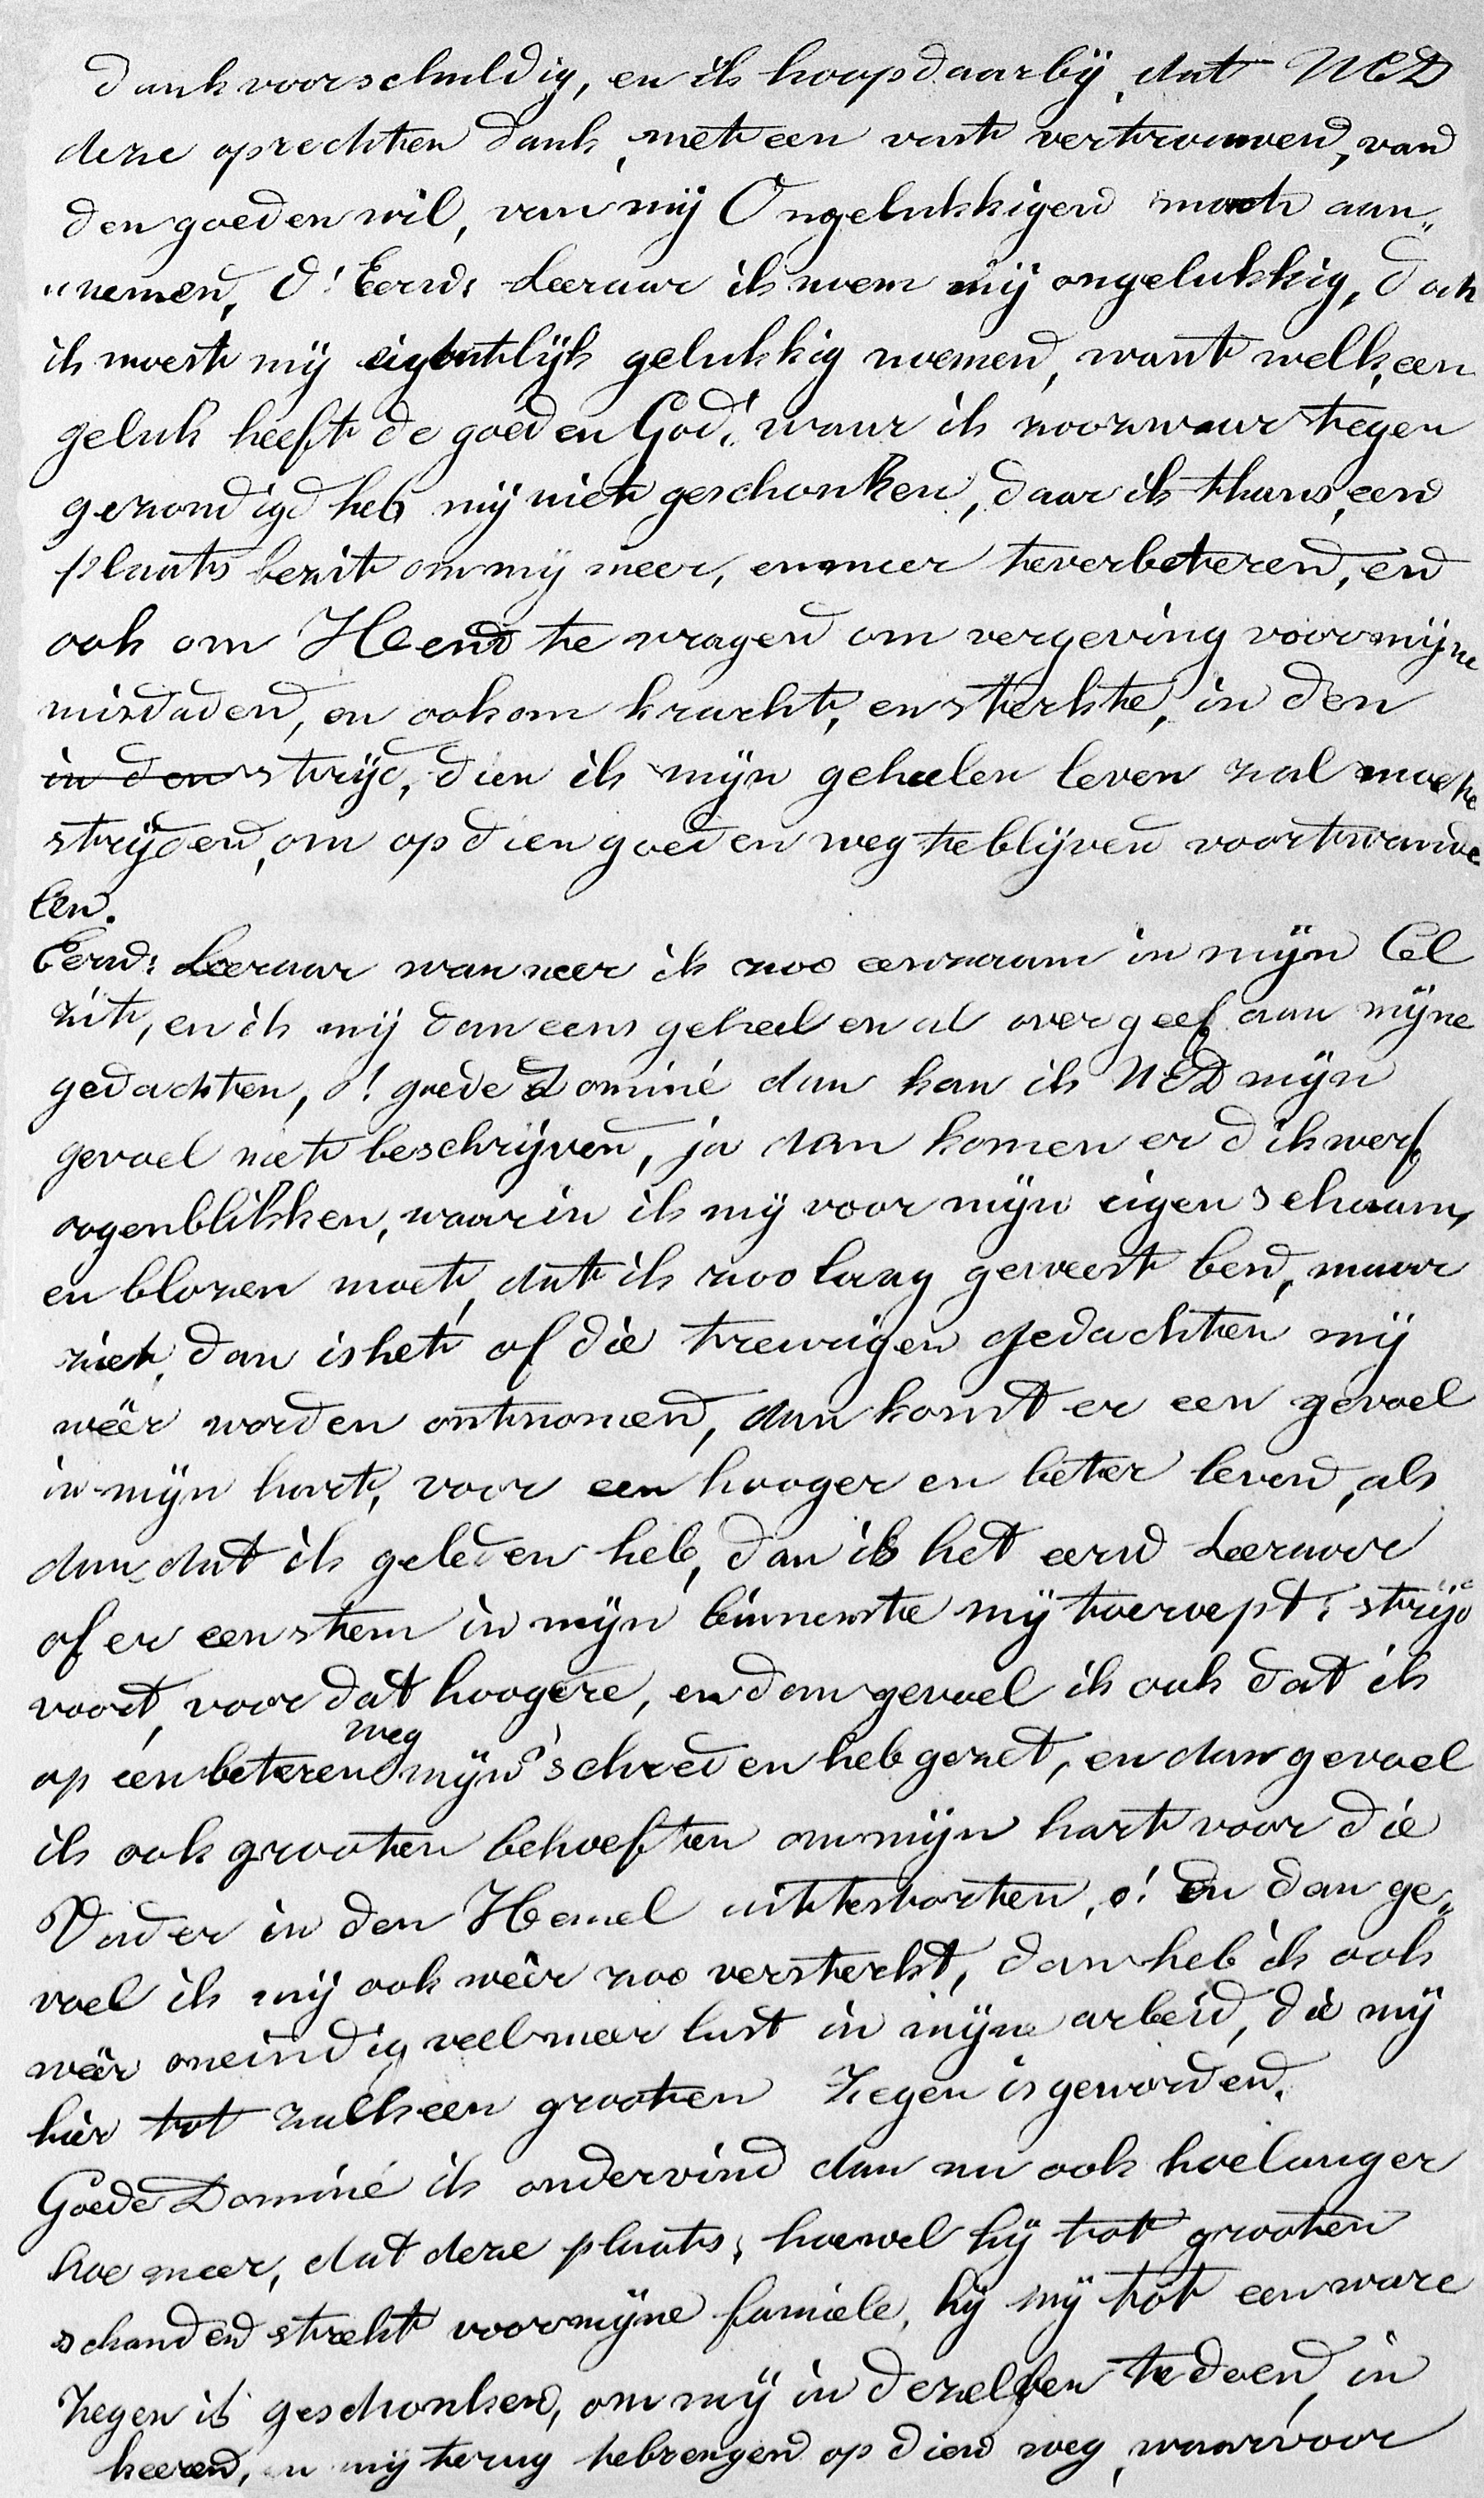 dank voorschuldig, en ik hoop daarbij, dat UED
deze oprechten dank, met een vast vertrouwen, van
den goeden wil, van mij Ongelukkigen moet aan„
„nemen, O! Eerw: Leeraar ik noem mij ongelukkig, doch
ik moest mij eigentlijk gelukkig noemen, want welk, een
geluk heeft de goeden God, waar ik zoozwaar tegen
gezondigd heb mij niet geschonken, daar ik thans, een
plaats bezit om mij meer, en meer te verbeteren, en
ook om Hem te vragen om vergeving voor mijne
misdaden, en ook om kracht, en sterkte, in den
in den strijd, dien ik mijn geheelen leven zal moete
strijden, om op dien goeden weg te blijven voortwande
len.
Eerw: Leeraar wanneer ik zoo eenzaam in mijn Cel
zit, en ik mij dan eens geheel en al over geef aan mijne
gedachten, o! goede Dominé dan kan ik UED mijn
gevoel niet beschrijven, ja dan komen er dikwerf
oogenblikken, waarin ik mij voor mijn eigen schaam,
en blozen moet, dat ik zoo laag geweest ben, maar
ziet, dan is het of die treurigen gedachten mij
wêêr worden ontnomen, dan komt er een gevoel
in mijn hart, voor een hooger en beter leven, als
dan dat ik geleden heb, dan is het eerw Leeraar
of er een stem in mijn binnenste mij toeroept: strijd
voort, voor dat hoogere, en dan gevoel ik ook dat ik
op een beteren weg mijn schreden heb gezet, en dan gevoel
ik ook grooten behoeften om mijn hart voor die
Vader in den Hemel uittestorten, o! En dan ge„
voel ik mij ook wêêr zoo versterkt, dan heb ik ook
wêêr oneindig veel meer lust in mijne arbeid, die mij
hier tot zulk een grooten Zegen is geworden.
Goede Dominé ik ondervind dan nu ook hoelanger
hoe meer, dat deze plaats, hoewel hij tot grooten
schanden strekt voor mijne famiele, hij mij tot een ware
Zegen is geschonken, om mij in dezelfen te doen, in
keeren, en mij terug tebrengen op dien weg, waarvoor